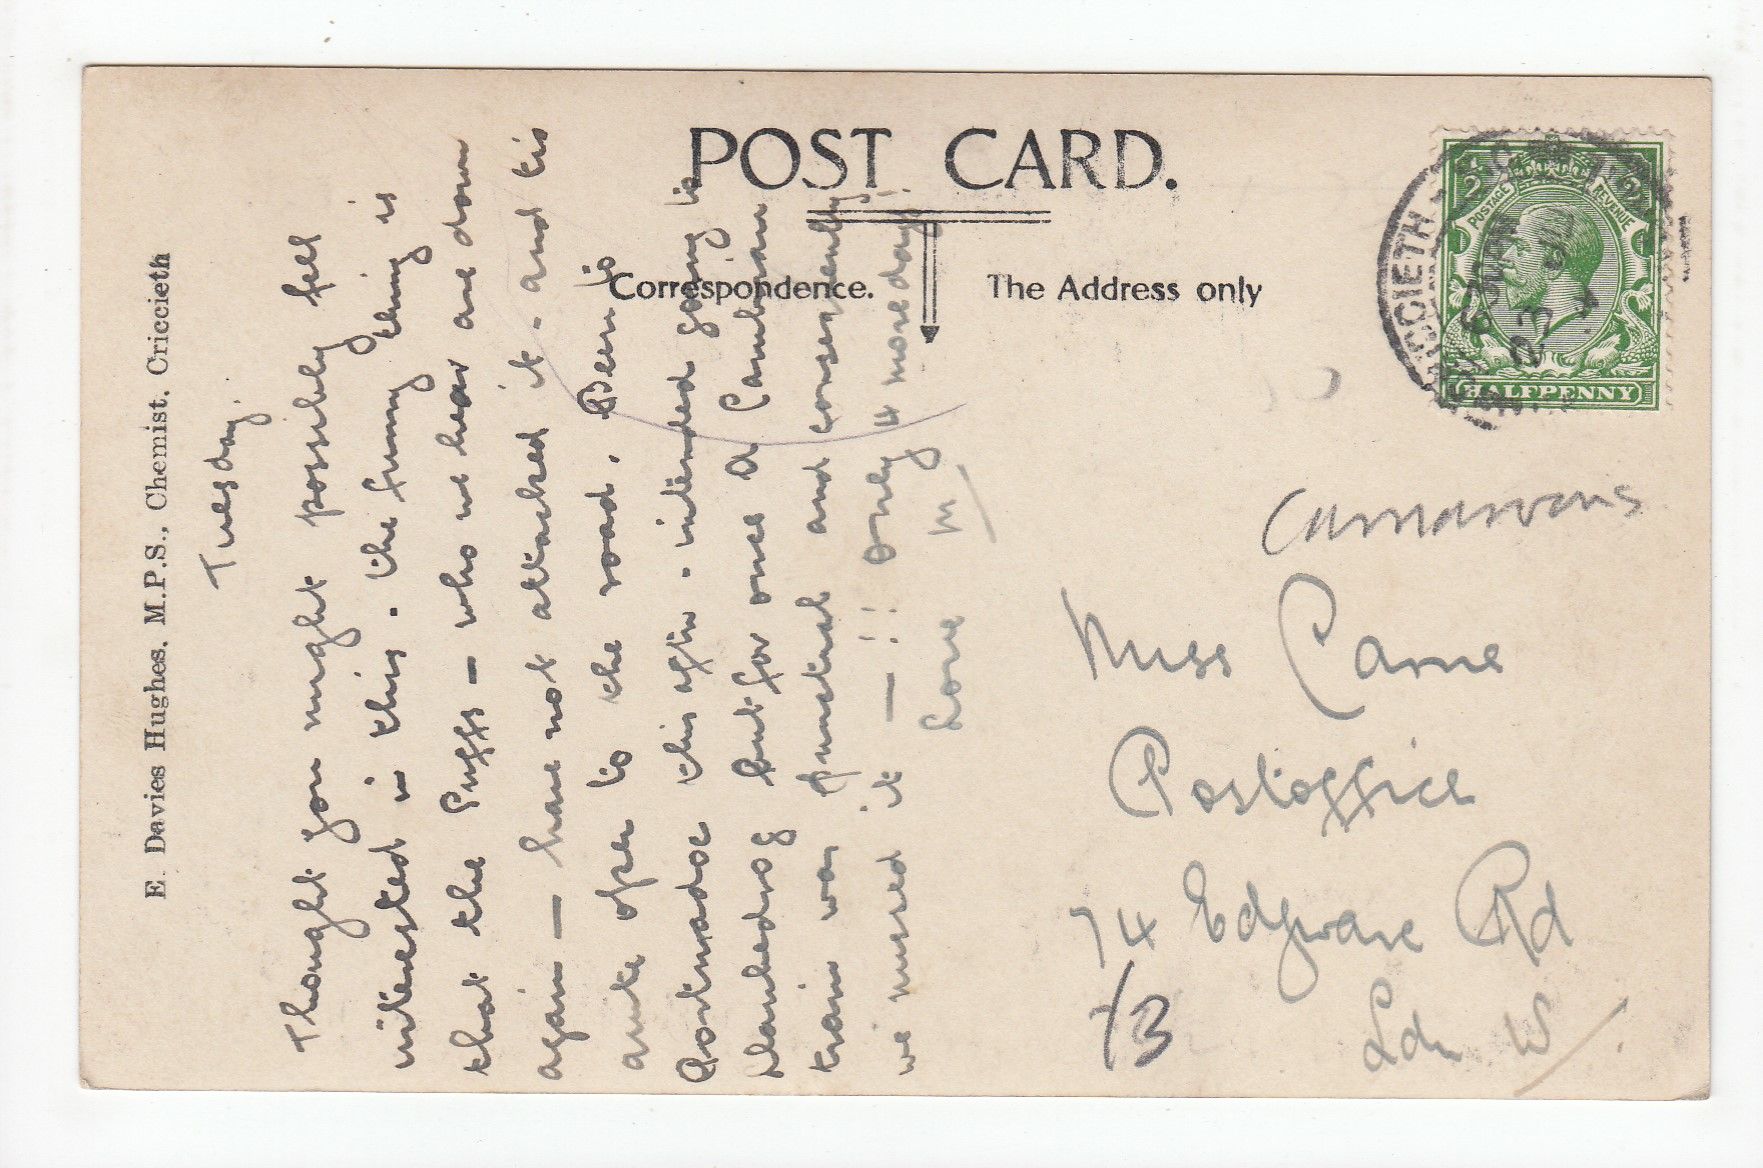 POST CARD.
Correspondence.
The Address only
E. Davies Hughes, M.P.S., Chemist, Criccieth
Tuesday.
Thought you might possibly feel
interested in this. the funny thing is
that the Puffs - who we hear are down
again - have not attacked it - and tis
quite open to the road. Been to
Portmadoc this aftn. intended going to
Llanbedrog but for once a Cambrian
train was punctual and consequently
we missed it - !! only 4 more days
Love M/
Miss Carne
Postoffice
74 Edgware Rd
Ldn W/.
73
Carnarvons
POSTAGE
REVENUE
HALFPENNY
CRICCIETH
23 JU